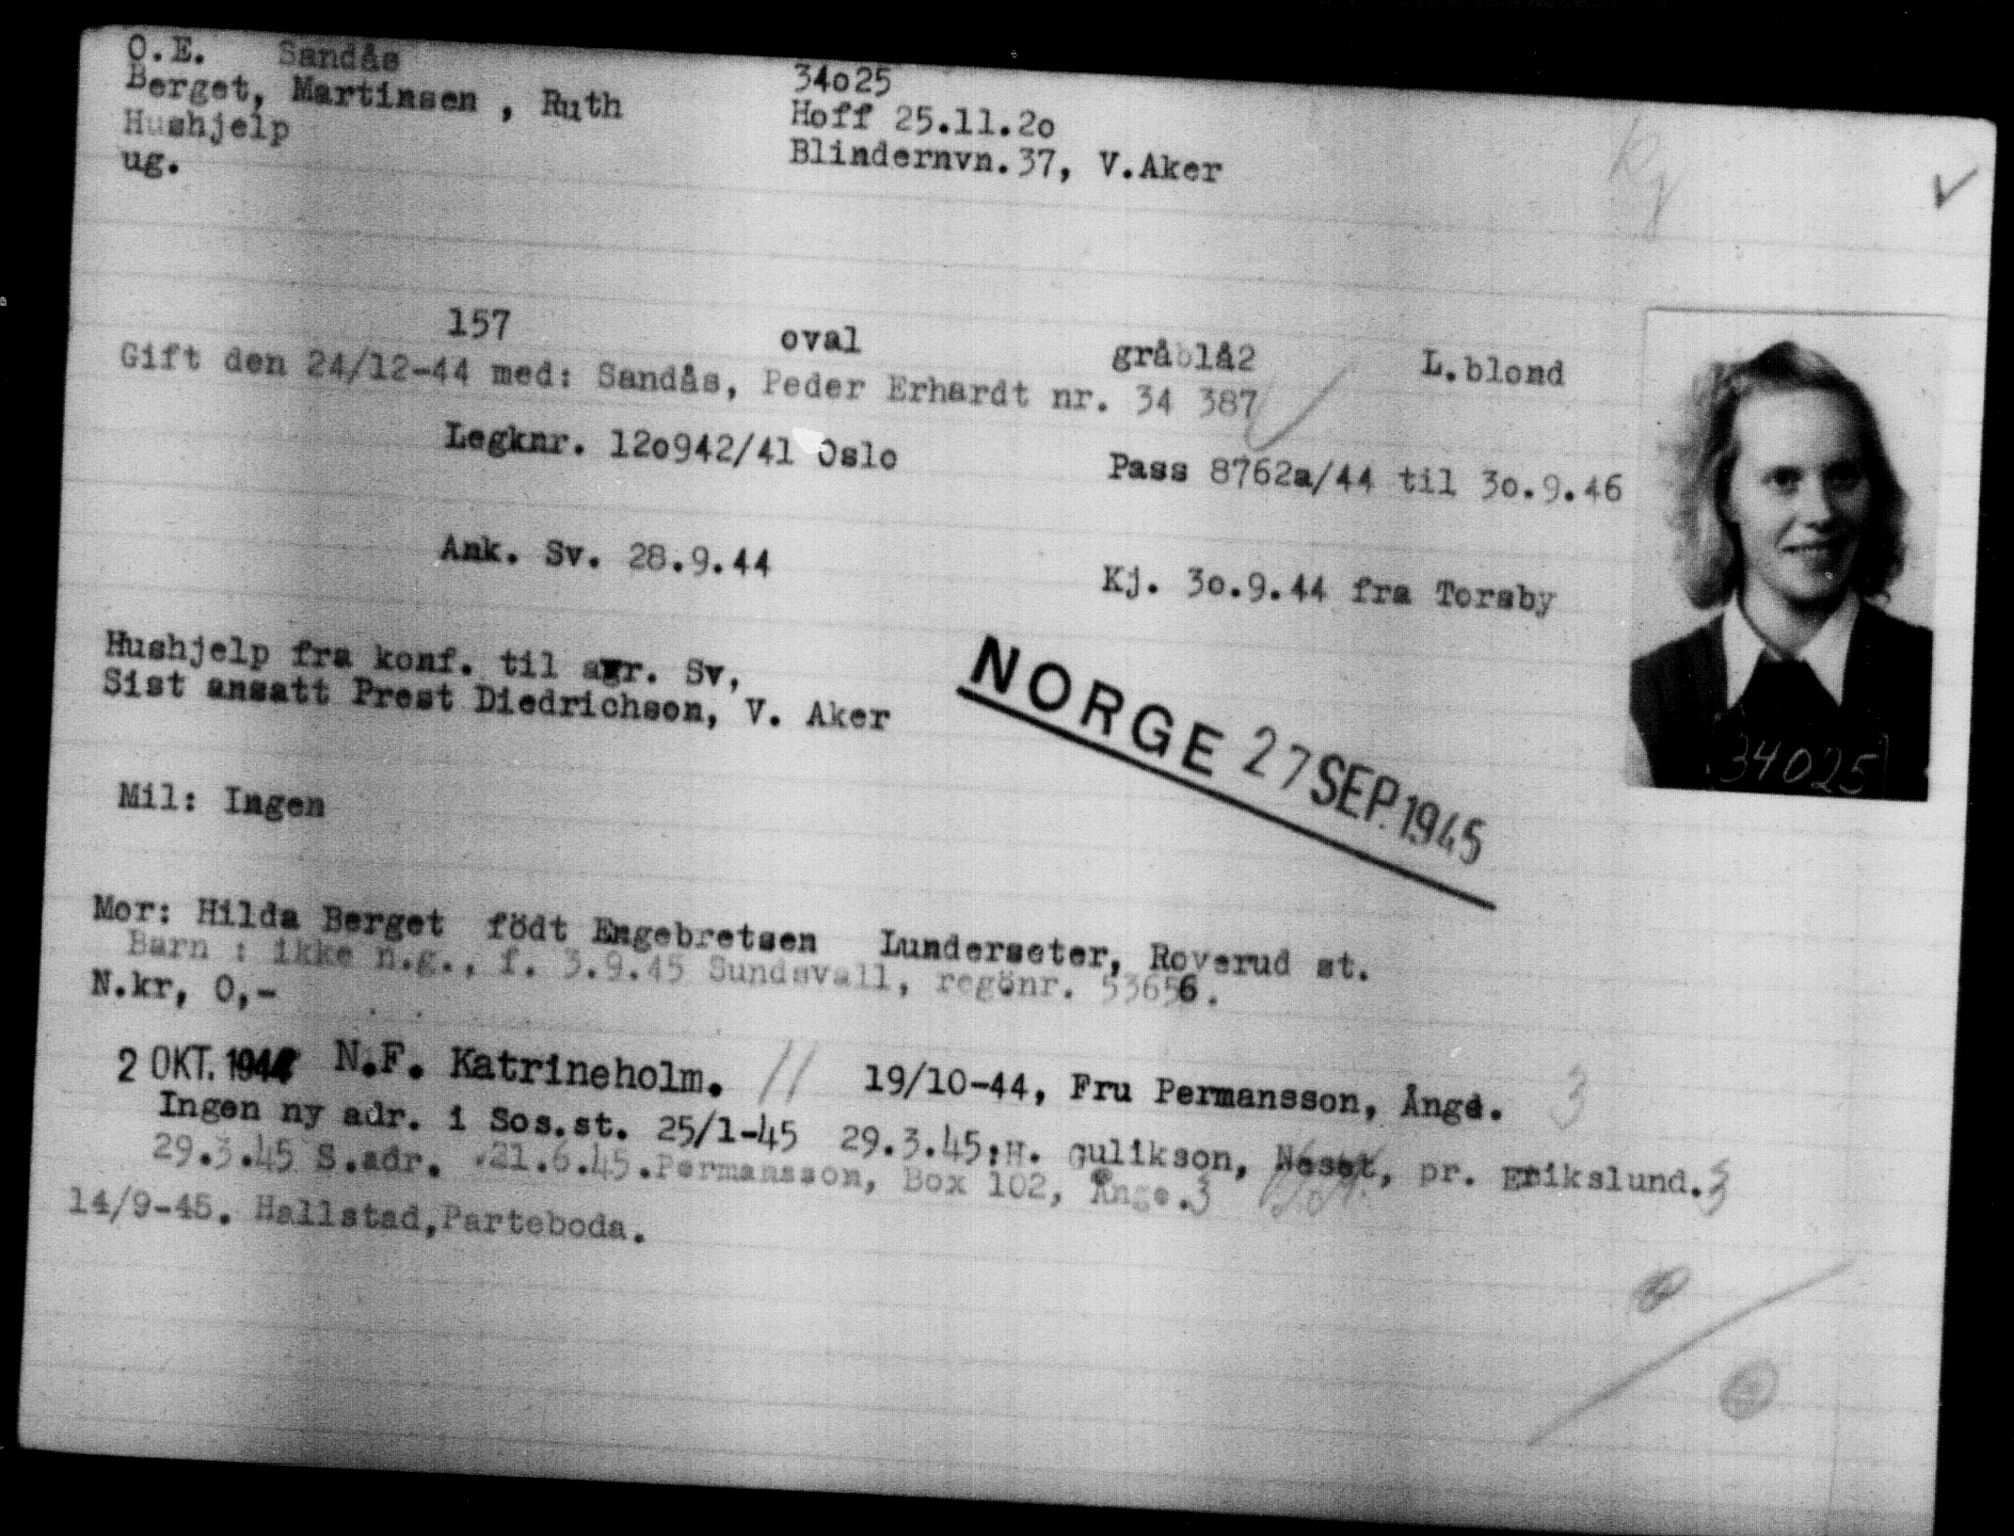 O.E. Sandås
Berget, Martinsen , Ruth
Hushjelp
ug.
34o25
Hoff 25.11.2o
Blindernvn.37, V.Aker
157 oval gråblå2 L.blond
Gift den 24/12-44 med: Sandås, Peder Erhardt nr. 34 387
Legknr. 12o942/41 Oslo Pass 8762a/44 til 3o.9.46
Ank. Sv. 28.9.44 Kj. 3o.9.44 fra Torsby
Hushjelp fra konf. til agr. Sv,
Sist ansatt Prest Diedrichson, V. Aker
NORGE 27 SEP. 1945
34025
Mil: Ingen
Mor: Hilda Berget födt Engebretsen Lunderseter, Roverud st.
Barn : ikke n.g., f. 3.9.45 Sundsvall, regönr. 53656.
N.kr, 0,-
2 OKT. 1944 N.F. Katrineholm. // 19/10-44, Fru Permansson, Ånge. 3
Ingen ny adr. i Sos.st. 25/1-45 29.3.45:H. Gulikson, Neset, pr. Erikslund.3
29.3.45 S.adr. 21.6.45.Permansson, Box 102, Ånge.3
14/9-45. Hallstad,Parteboda.